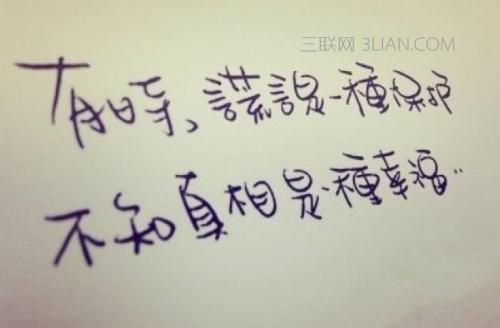 三联网 3LIAN.COM
有时、謊言是一種保护
不知真相是一種幸福..